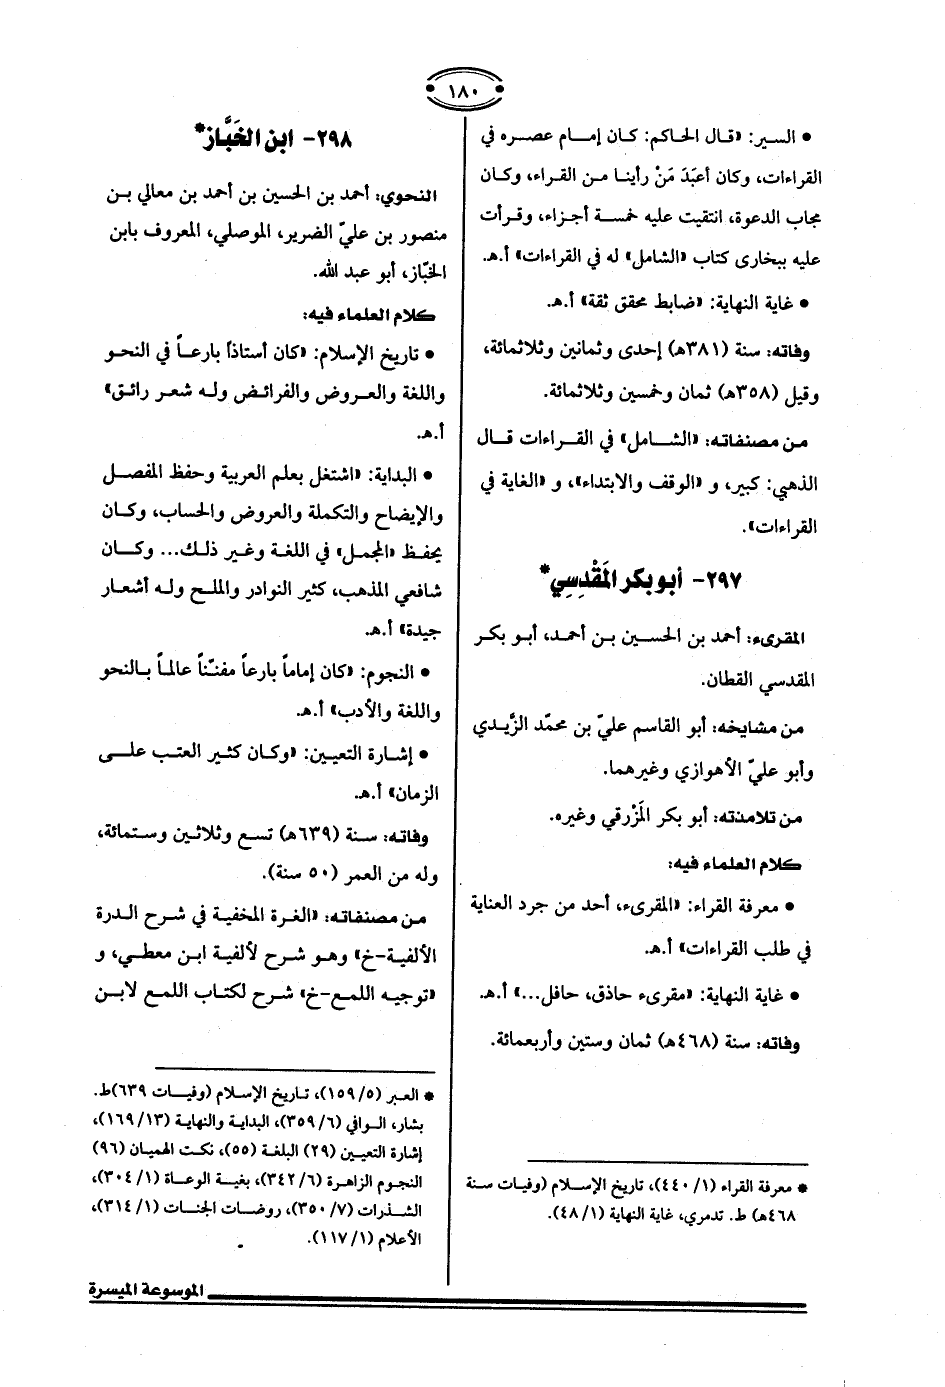 ١٨٠
• السير: «قال الحاكم: كان إمام عصره في
القراءات، وكان أعبَدَ مَنْ رأينا من القراء، وكان
مجاب الدعوة، انتقيت عليه خمسة أجزاء، وقرأت
عليه ببخارى كتاب «الشامل» له في القراءات» أ.هـ.
• غاية النهاية: «ضابط محقق ثقة» أ.هـ.
وفاته: سنة (٣٨١هـ) إحدى وثمانين وثلاثمائة،
وقيل (٣٥٨هـ) ثمان وخمسين وثلاثمائة.
من مصنفاته: «الشامل» في القراءات قال
الذهبي: كبير، و «الوقف والابتداء»، و «الغاية في
القراءات».
٢٩٧- أبو بكر المَقْدِسِي*
المقرىء: أحمد بن الحسين بن أحمد، أبو بكر
المقدسي القطان.
من مشايخه: أبو القاسم عليّ بن محمّد الزَّيدي
وأبو عليّ الأهوازي وغيرهما.
من تلامذته: أبو بكر المَزْرقي وغيره.
كلام العلماء فيه:
• معرفة القراء: «المقرىء، أحد من جرد العناية
في طلب القراءات» أ.هـ.
• غاية النهاية: «مقرىء حاذق، حافل...» أ.هـ.
وفاته: سنة (٤٦٨هـ) ثمان وستين وأربعمائة.
* معرفة القراء (١/ ٤٤٠)، تاريخ الإسلام (وفيات سنة
٤٦٨هـ) ط. تدمري، غاية النهاية (١/ ٤٨).
٢٩٨- ابن الخَبَّاز*
النحوي: أحمد بن الحسين بن أحمد بن معالي بن
منصور بن عليّ الضرير، الموصلي، المعروف بابن
الخبّاز، أبو عبد الله.
كلام العلماء فيه:
• تاريخ الإسلام: «كان أستاذاً بارعاً في النحو
واللغة والعروض والفرائض وله شعر رائق»
أ.هـ.
• البداية: «اشتغل بعلم العربية وحفظ المفصل
والإيضاح والتكملة والعروض والحساب، وكان
يحفظ «المجمل» في اللغة وغير ذلك... وكان
شافعي المذهب، كثير النوادر والملح وله أشعار
جيدة» أ.هـ.
• النجوم: «كان إماماً بارعاً مفنّناً عالماً بالنحو
واللغة والأدب» أ.هـ.
• إشارة التعيين: «وكان كثير العتب على
الزمان» أ.هـ.
وفاته: سنة (٦٣٩هـ) تسع وثلاثين وستمائة،
وله من العمر (٥٠ سنة).
من مصنفاته: «الغرة المخفية في شرح الدرة
الألفية-خ» وهو شرح لألفية ابن معطي، و
«توجيه اللمع-خ» شرح لكتاب اللمع لابن
* العبر (٥/ ١٥٩)، تاريخ الإسلام (وفيات ٦٣٩)ط.
بشار، الوافي (٦/ ٣٥٩)، البداية والنهاية (١٣/ ١٦٩)،
إشارة التعيين (٢٩) البلغة (٥٥)، نكت الهميان (٩٦)
النجوم الزاهرة (٦/ ٣٤٢)، بغية الوعاة (١/ ٣٠٤)،
الشذرات (٧/ ٣٥٠)، روضات الجنات (١/ ٣١٤)،
الأعلام (١/ ١١٧).
الموسوعة الميسرة